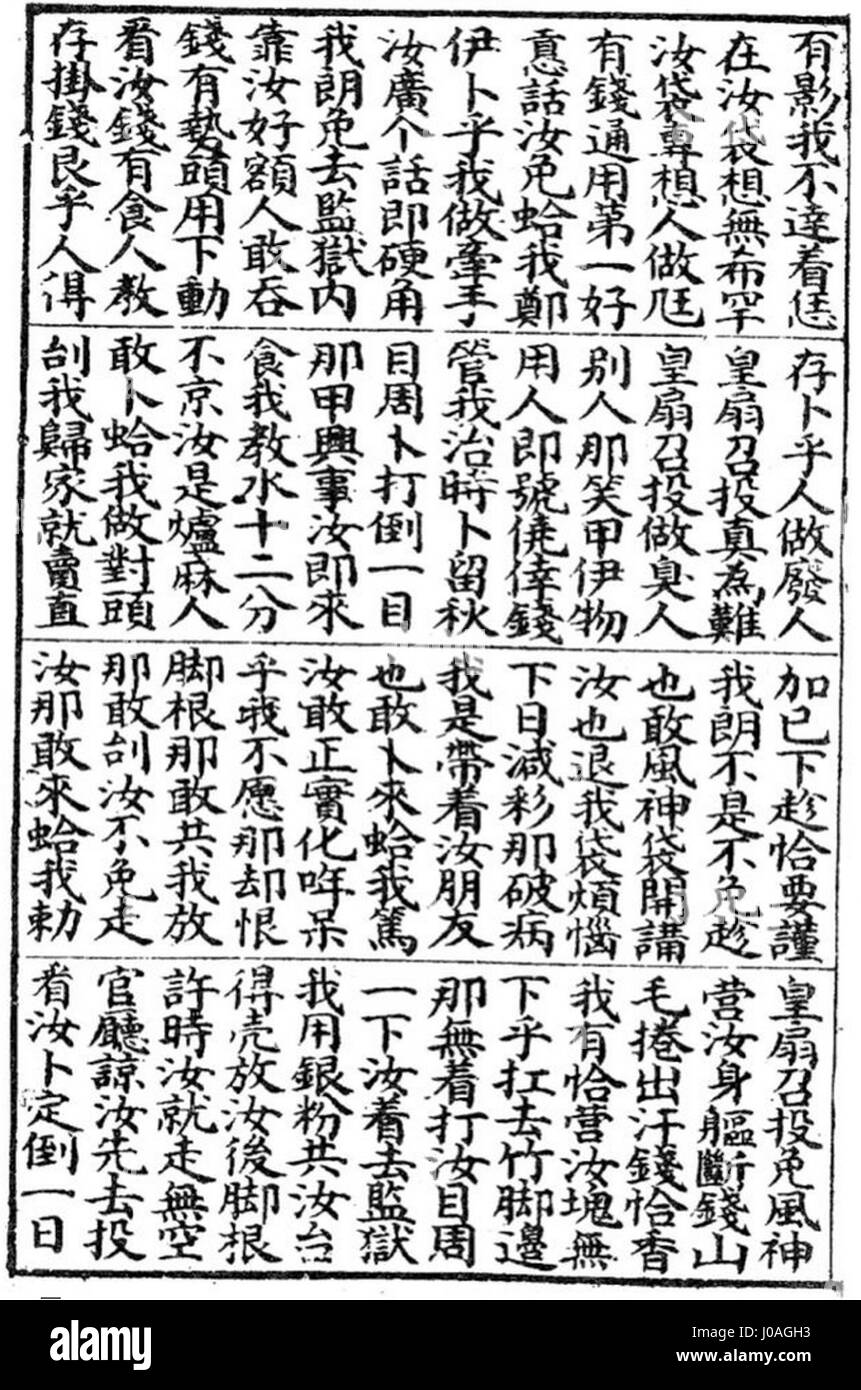 有影我不達着恁
存卜乎人做廢人
加已下趁恰要謹
皇扇召投免風神
在汝袋想無希罕
皇扇召投真為難
我朗不是不免趁
营汝身軀斷錢山
汝袋專想人做尪
皇扇召投做臭人
也敢風神袋開講
毛捲出汗錢恰香
有錢通用第一好
别人那笑甲伊物
汝也退我袋煩惱
我有恰营汝塊無
話汝免蛤我鄭
用人即號僥倖錢
下日減彩那破病
下乎扛去竹脚邊
伊卜乎我做牽手
管我治時卜留秋
我是帶着汝朋友
那無着打汝目周
汝廣个話即硬角
目周卜打倒一目
也敢卜來蛤我篤
一下汝着去監獄
我朗免去監獄内
那甲興事汝即來
汝敢正實化哖呆
我用銀粉共汝台
靠汝好額人敢吞
食我教水十二分
乎我不愿那却恨
得壳放汝後脚根
錢有勢頭用下動
不京汝是爐麻人
脚根那敢共我放
許時汝就走無空
看汝錢有食人教
敢卜蛤我做對頭
那敢刣汝不免走
官廳諒汝先去投
存掛錢艮乎人得
刣我歸家就賣直
汝那敢來蛤我勅
看汝卜定倒一日
alamy
Image ID: J0AGH3
www.alamy.com